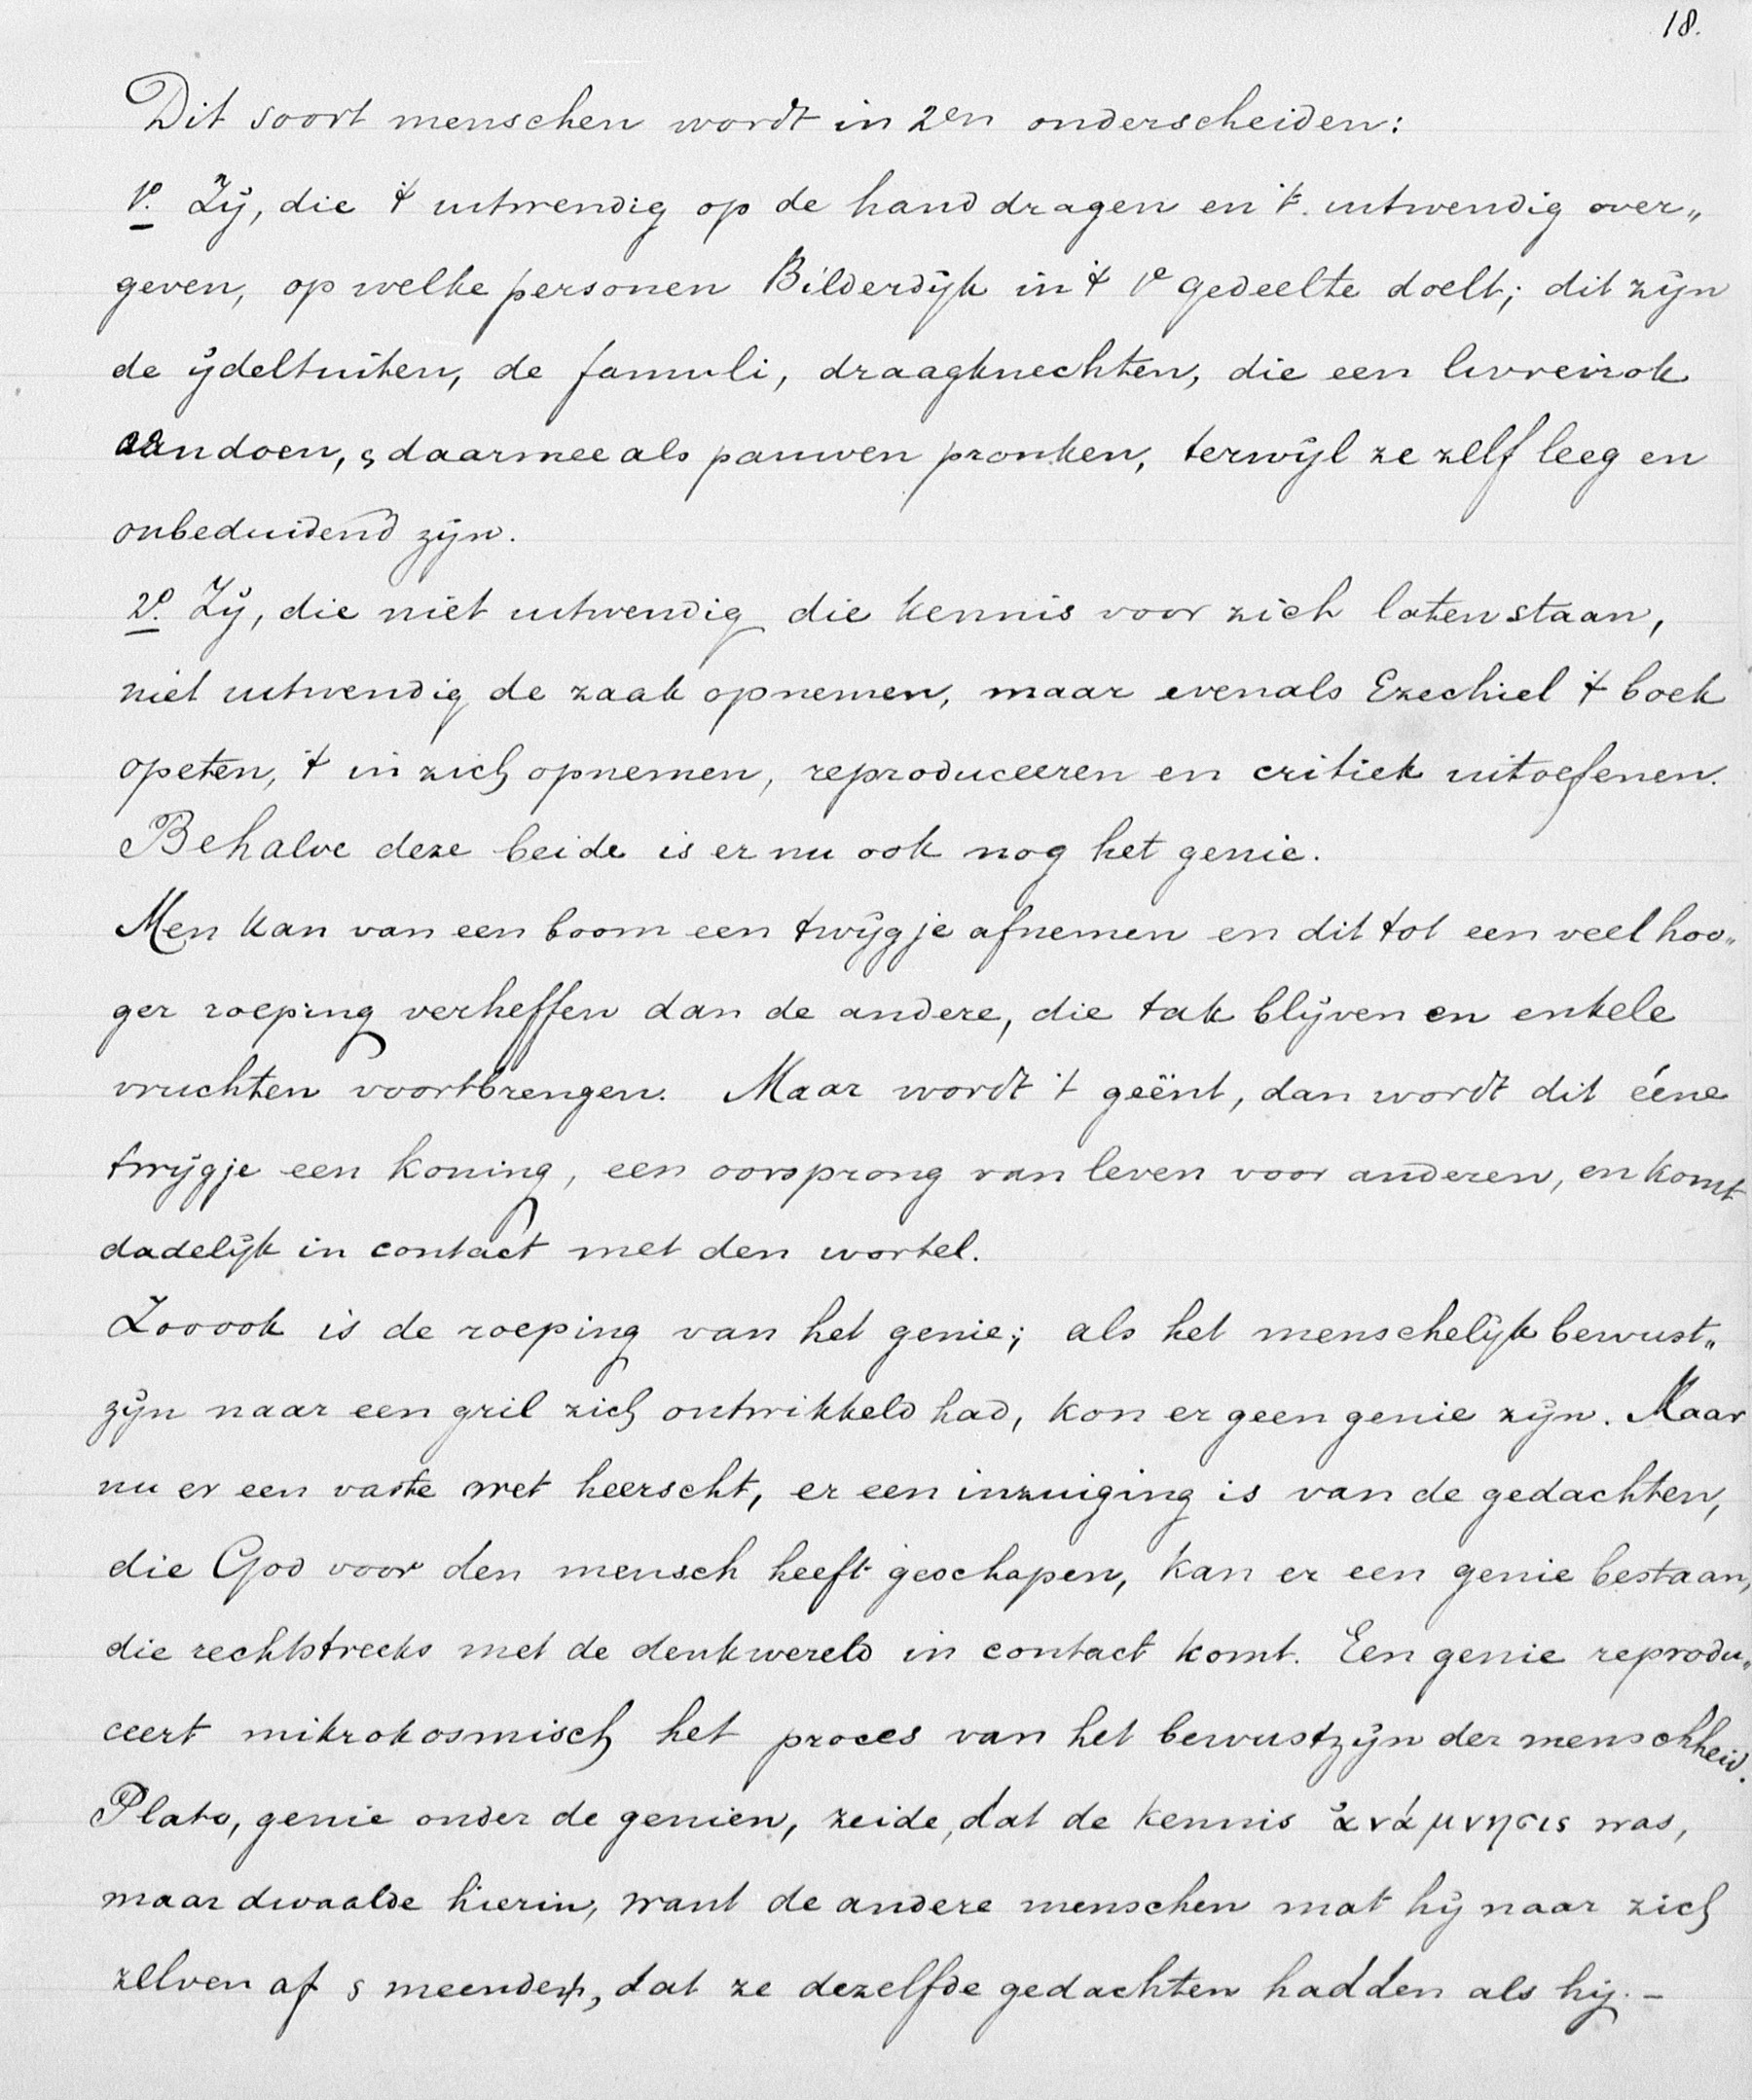 18.
Dit soort menschen wordt in 2en onderscheiden:
1o. Zij, die 't uitwendig op de hand dragen en 't uitwendig over„
geven, op welke personen Bilderdijk in 't 1e gedeelte doelt; dit zijn
de ijdeltuiten, de famuli, draagknechten, die een livreirok
aandoen, s daarmee als pauwen pronken, terwijl ze zelf leeg en
onbeduidend zijn.
2o. Zij, die niet uitwendig die kennis voor zich laten staan,
niet uitwendig de zaak opnemen, maar evenals Ezechiel 't boek
opeten, 't in zich opnemen, reproduceeren en critiek uitoefenen.
Behalve deze beide is er nu ook nog het genie.
Men kan van een boom een twijgje afnemen en dit tot een veel hoo„
ger roeping verheffen dan de andere, die tak blijven en enkele
vruchten voortbrengen. Maar wordt 't geënt, dan wordt dit ééne
twijgje een koning, een oorsprong van leven voor anderen, en komt
dadelijk in contact met den wortel.
Zooook is de roeping van het genie; als het menschelijk bewust„
zijn naar een gril zich ontwikkeld had, kon er geen genie zijn. Maar
nu er een vaste wet heerscht, er een inzuiging is van de gedachten,
die God voor den mensch heeft geschapen, kan er een genie bestaan,
die rechtstreeks met de denkwereld in contact komt. Een genie reprodu„
ceert mikrokosmisch het proces van het bewustzijn der menschheid.
Plato, genie onder de geniën, zeide, dat de kennis ἀνάμνησις was,
maar dwaalde hierin, want de andere menschen mat hij naar zich
zelven af s meende, dat ze dezelfde gedachten hadden als hij. –